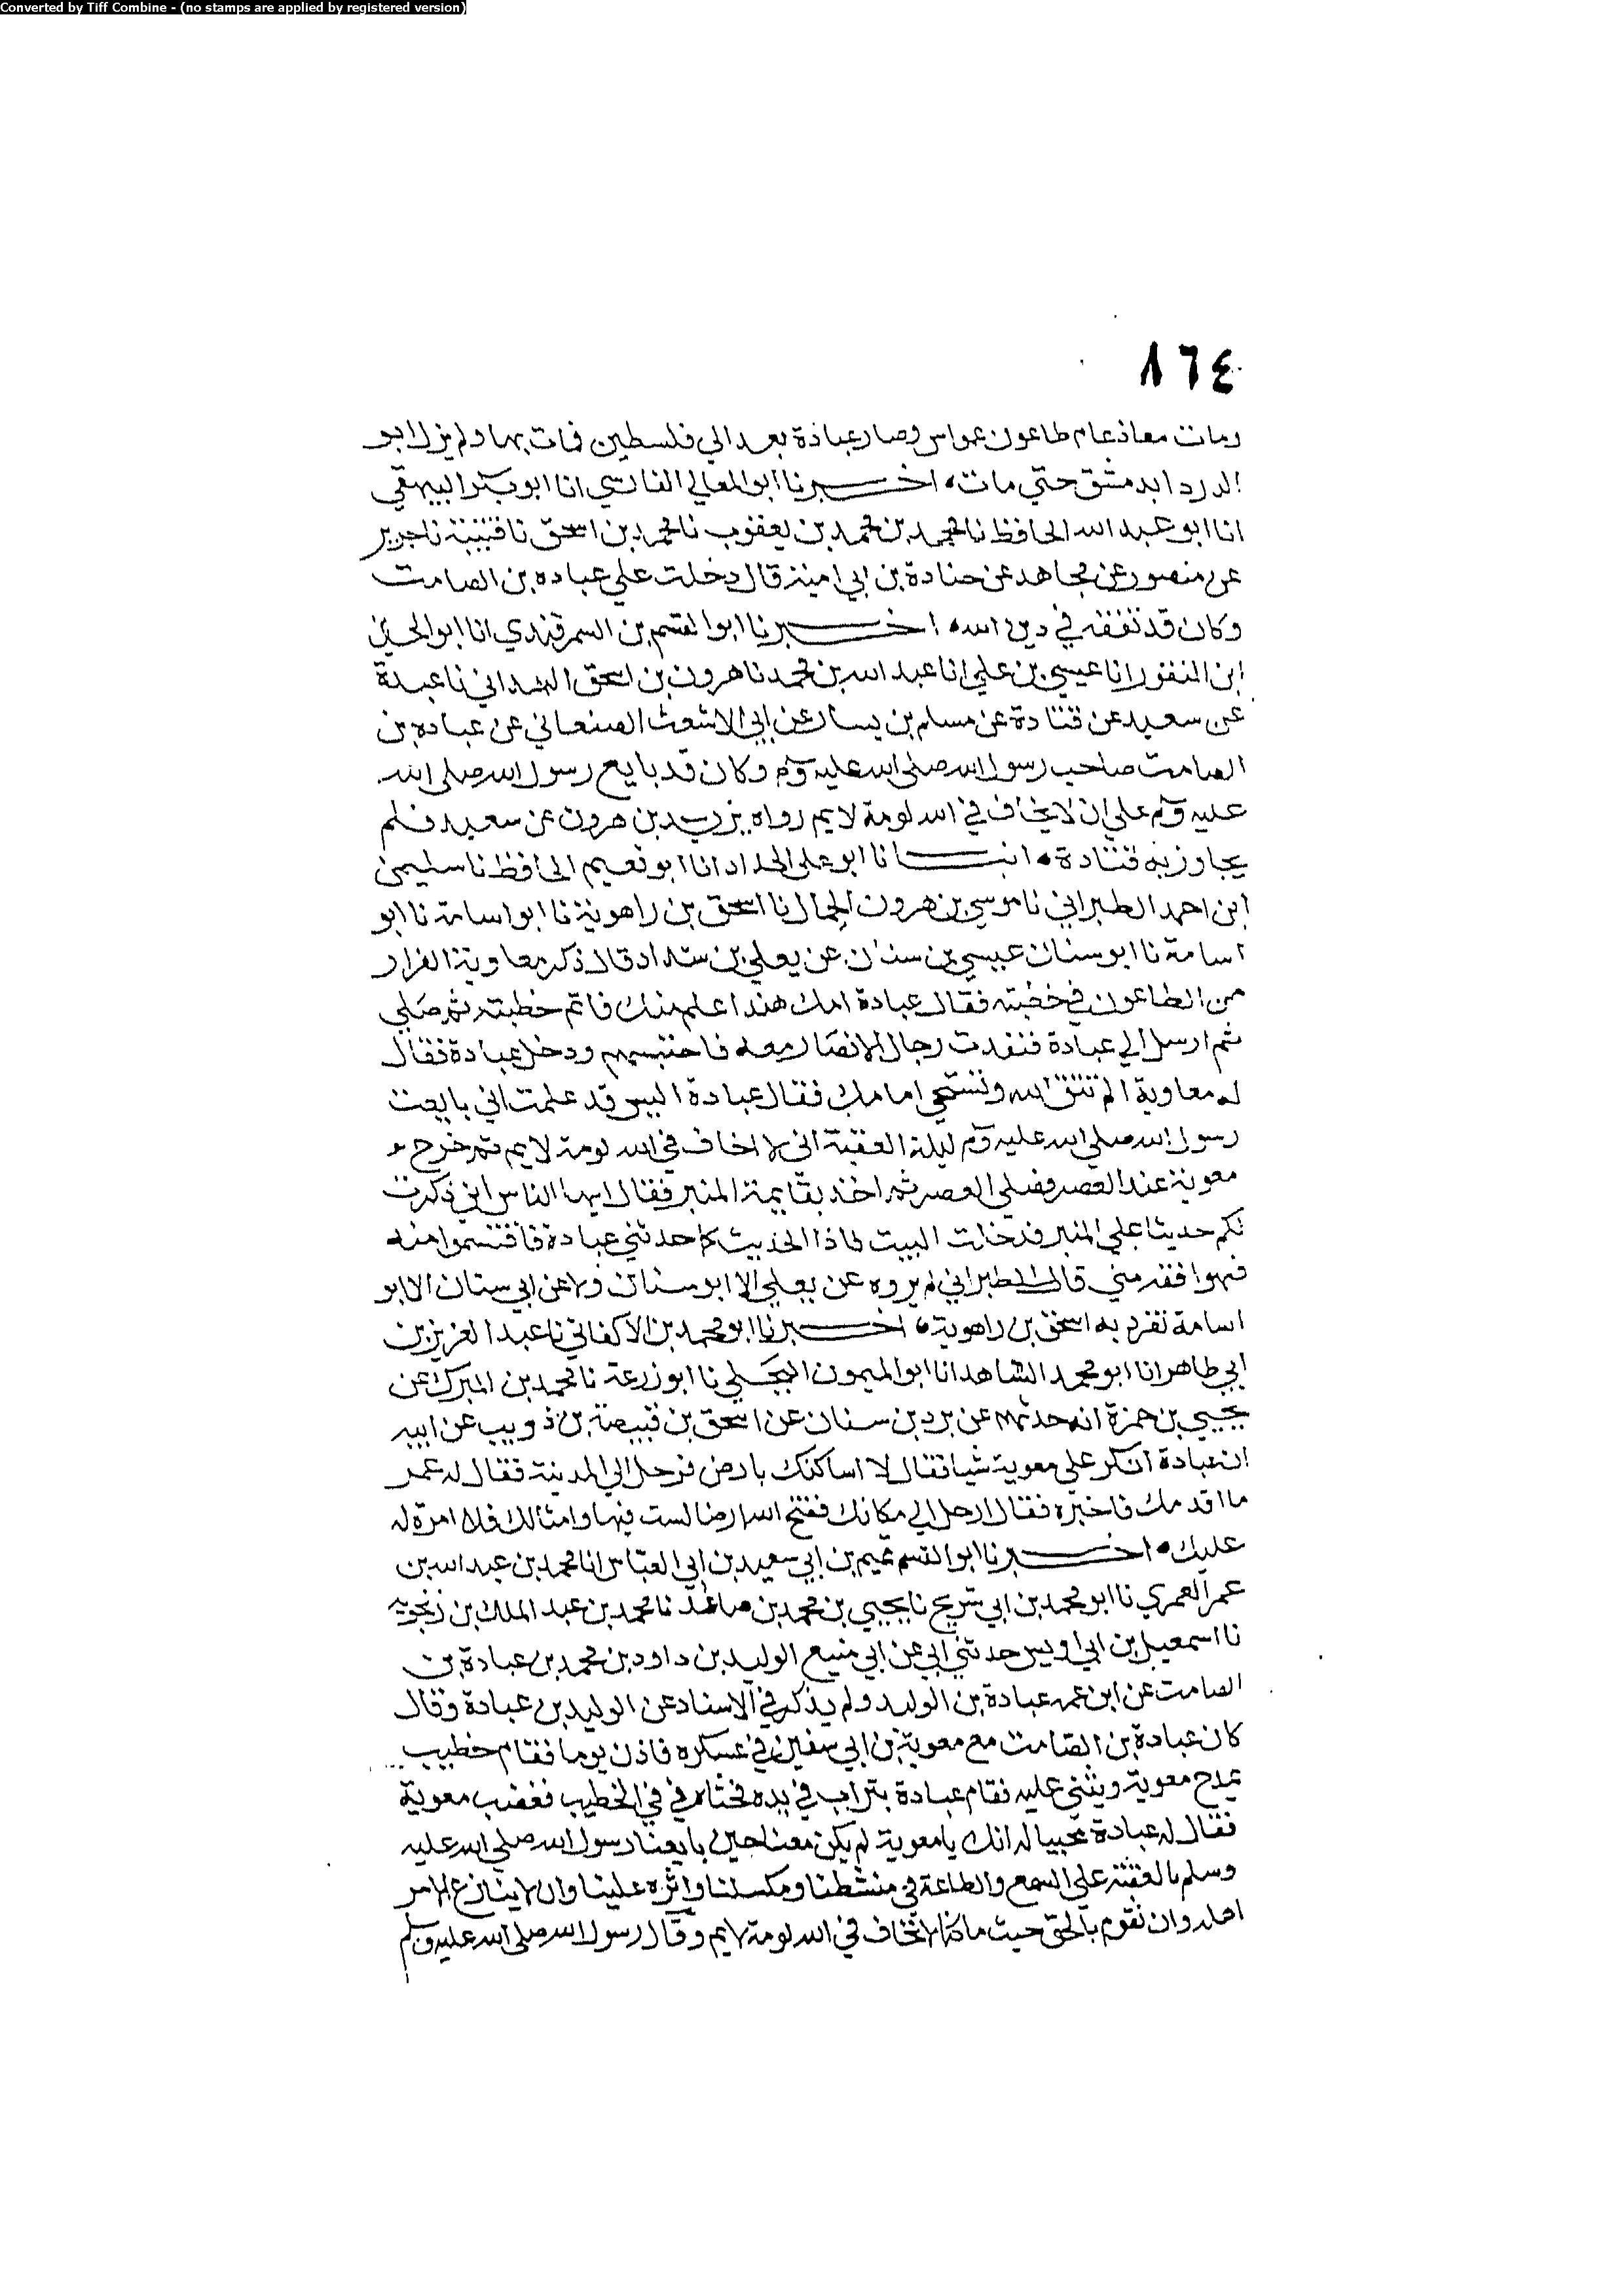 Converted by Tiff Combine - (no stamps are applied by registered version)
٨٦٤
ومات معاذ عام طاعون عمواس وصار عبادة بعد الي فلسطين فمات بها ولم يزل ابو
الدردا بدمشق حتي مات اخبرنا ابو المعالي الفارسي انا ابو بكر البيهقي
انا ابو عبد الله الحافظ نا محمد بن محمد بن يعقوب نا محمد بن اسحق نا قتيبة نا جرير
عن منصور عن مجاهد عن جنادة بن ابي امية قال دخلت علي عباده بن الصامت
وكان قد تفقه في دين الله اخبرنا ابو القسم بن السمرقندي انا ابو الحسين
ابن النقور انا عيسي بن علي انا عبد الله بن محمد نا هرون بن اسحق الهمداني نا عبدة
عن سعيد عن قتادة عن مسلم بن يسار عن ابي الاشعث الصنعاني عن عباده بن
الصامت صاحب رسول الله صلى الله عليه وسلم وكان قد بايع رسول الله صلى الله
عليه وسلم علي ان لا يخاف في الله لومة لايم رواه يزيد بن هرون عن سعيد فلم
يجاوز به قتادة انبانا ابو علي الحداد انا ابو نعيم الحافظ نا سليمن
ابن احمد الطبراني نا موسي بن هرون الجمال نا اسحق بن راهوية نا ابو اسامة نا ابو
اسامة نا ابو سنان عيسي بن سنان عن يعلي بن شداد قال ذكر معاوية الفرار
من الطاعون في خطبته فقال عبادة امك هند اعلم منك فاتم خطبته ثم صلي
ثم ارسل الي عبادة فنفدت رجال الانصار معه فاحتبسهم ودخل عبادة فقال
له معاوية الم تتق الله وتستحي امامك فقال عبادة اليس قد علمت اني بايعت
رسول الله صلي الله عليه وسلم ليلة العقبة اني لا اخاف في الله لومة لايم ثم خرج
معوية عند العصر فصلي العصر ثم اخذ بقايمة المنبر فقال ايها الناس اني ذكرت
لكم حديثا علي المنبر فدخلت البيت فاذا الحديث كما حدثني عبادة فاقتسموا منه
فهو افقه مني قال الطبراني لم يروه عن يعلي الا ابو سنان ولا عن ابي سنان الا ابو
اسامة تفرد به اسحق بن راهوية اخبرنا ابو محمد بن الاكفاني نا عبد العزيز بن
ابي طاهر انا ابو محمد الشاهد انا ابو الميمون البجلي نا ابو زرعة نا محمد بن المبرك عن
يحيي بن حمزة انه حدثهم عن برد بن سنان عن اسحق بن قبيصة بن ذويب عن ابيه
ان عبادة انكر علي معوية شيا فقال لا اساكنك بارض فرحل الي المدينة فقال له عمر
ما اقدمك فاخبره فقال ارحل الي مكانك فقبح الله ارضا لست فيها وامثالك فلا امرة له
عليك اخبرنا ابو القسم تميم بن ابي سعيد بن ابي العباس انا محمد بن عبد الله بن
عمر العمري نا ابو محمد بن ابي شريح نا يحيي بن محمد بن صاعد نا محمد بن عبد الملك بن زنجويه
نا اسمعيل بن ابي اويس حدثني ابي عن ابي منيع الوليد بن داود بن محمد بن عبادة بن
الصامت عن ابن عمه عبادة بن الوليد ولم يذكر في الاسناد عن الوليد بن عبادة وقال
كان عبادة بن الصامت مع معوية بن ابي سفين في عسكره فاذن يوما فقام خطيب
يمدح معوية ويثني عليه فقام عبادة بتراب في يده فحثاه في في الخطيب فغضب معوية
فقال له عبادة مجيبا له انك يا معوية لم يكن معنا حين بايعنا رسول الله صلي الله عليه
وسلم بالعقبة علي السمع والطاعة في منشطنا ومكسلنا واثره علينا وان لا ينازع الامر
اهله وان نقوم بالحق حيث ما كنا لا نخاف في الله لومة لايم وقال رسول الله صلي الله عليه وسلم